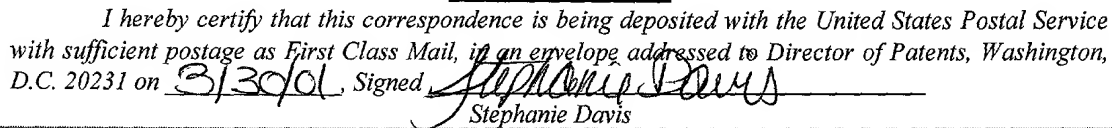 I hereby certify that this correspondence is being deposited with the United States Postal Service
with sufficient postage as First Class Mail, in an envelope addressed to Director of Patents, Washington,
D.C. 20231 on 3/30/01, Signed Stephanie Davis
Stephanie Davis